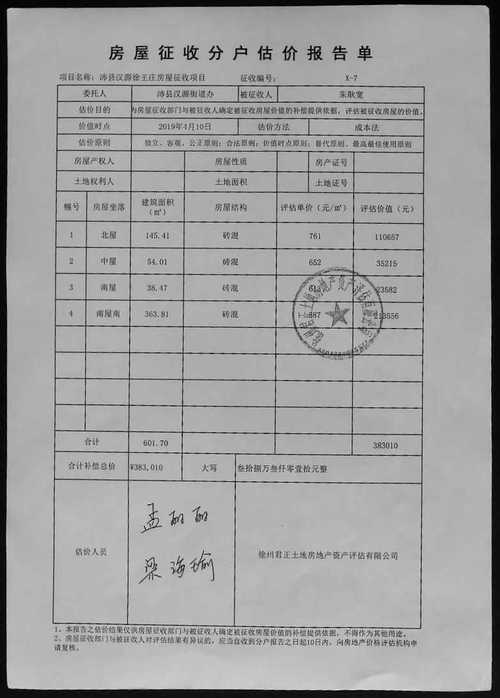 房屋征收分户估价报告单
项目名称：沛县汉源徐王庄房屋征收项目 征收编号： X-7
委托人 沛县汉源街道办 被征收人 朱耿宽
估价目的 为房屋征收部门与被征收人确定被征收房屋价值的补偿提供依据，评估被征收房屋的价值。
价值时点 2019年4月10日 估价方法 成本法
估价原则 独立、客观、公正原则；合法原则；价值时点原则；替代原则、最高最佳使用原则
房屋产权人 房屋性质 房产证号
土地权利人 土地面积 土地证号
幢号 房屋坐落 建筑面积（㎡） 房屋结构 评估单价（元/㎡） 评估价值（元）
1 北屋 145.41 砖混 761 110657
2 中屋 54.01 砖混 652 35215
3 南屋 38.47 砖混 613 23582
4 南屋南 363.81 砖混 587 213556
合计 601.70 383010
合计补偿总价 ¥383,010 大写 叁拾捌万叁仟零壹拾元整
估价人员 孟丽丽 梁海瑜 徐州君正土地房地产资产评估有限公司
1、本报告之估价结果仅供房屋征收部门与被征收人确定被征收房屋价值的补偿提供依据，不得作为其他用途。
2、房屋征收部门与被征收人对评估结果有异议的，应当自收到分户报告之日起10日内，向房地产价格评估机构申
请复核。